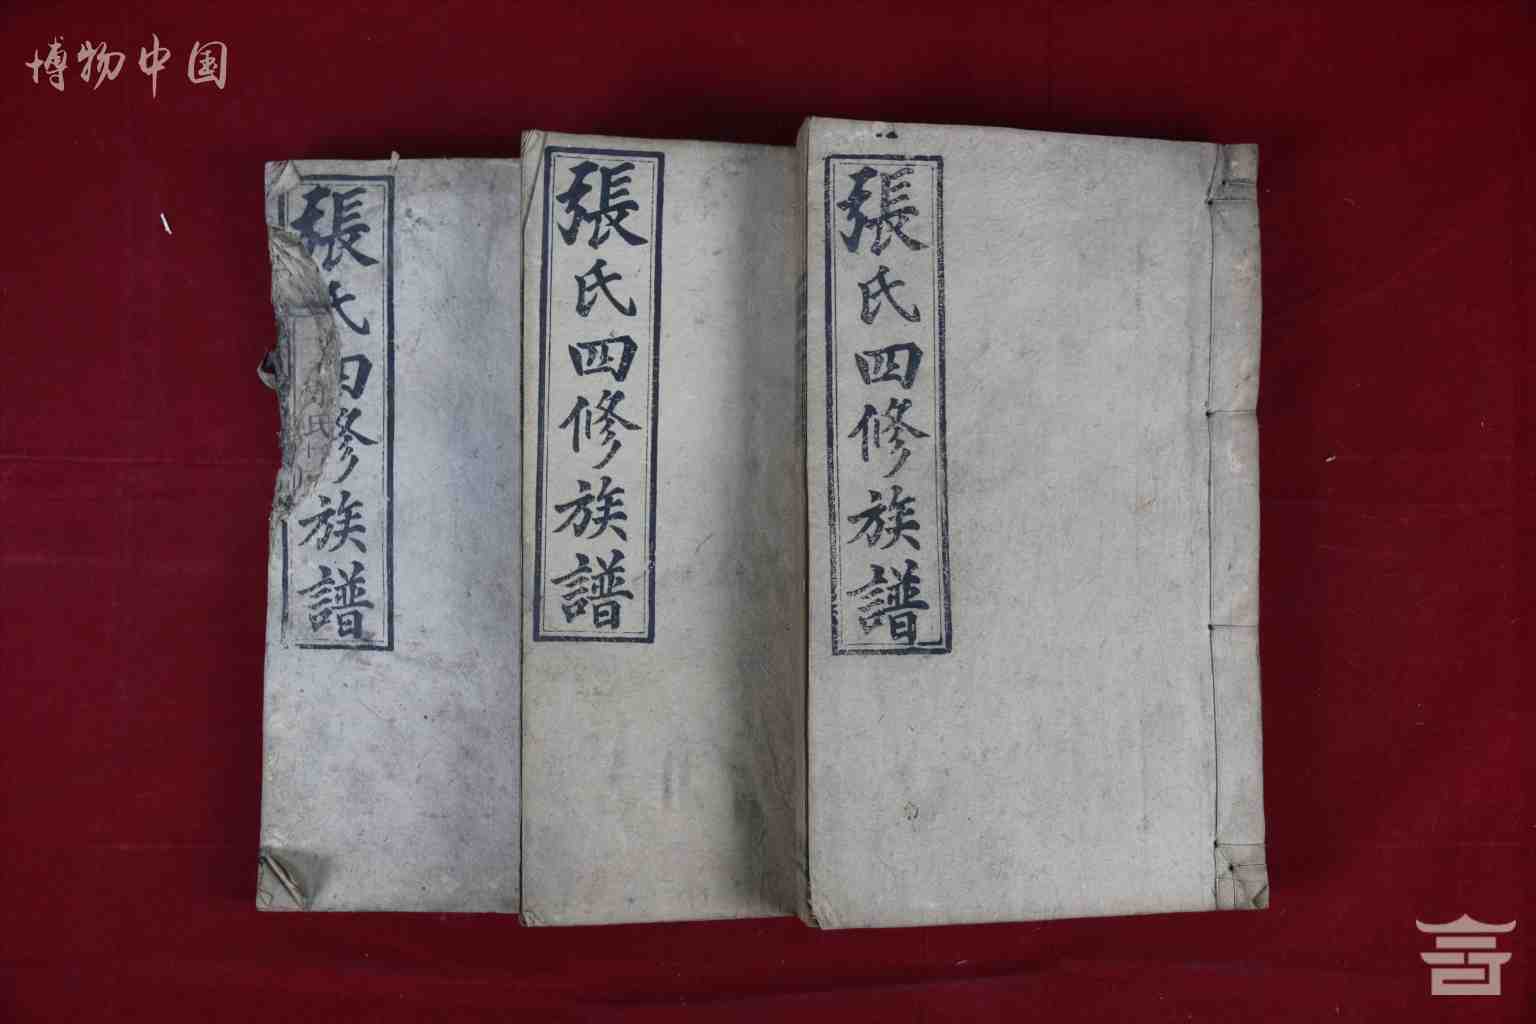 博物中国
張氏四修族譜
張氏四修族譜
張氏四修族譜